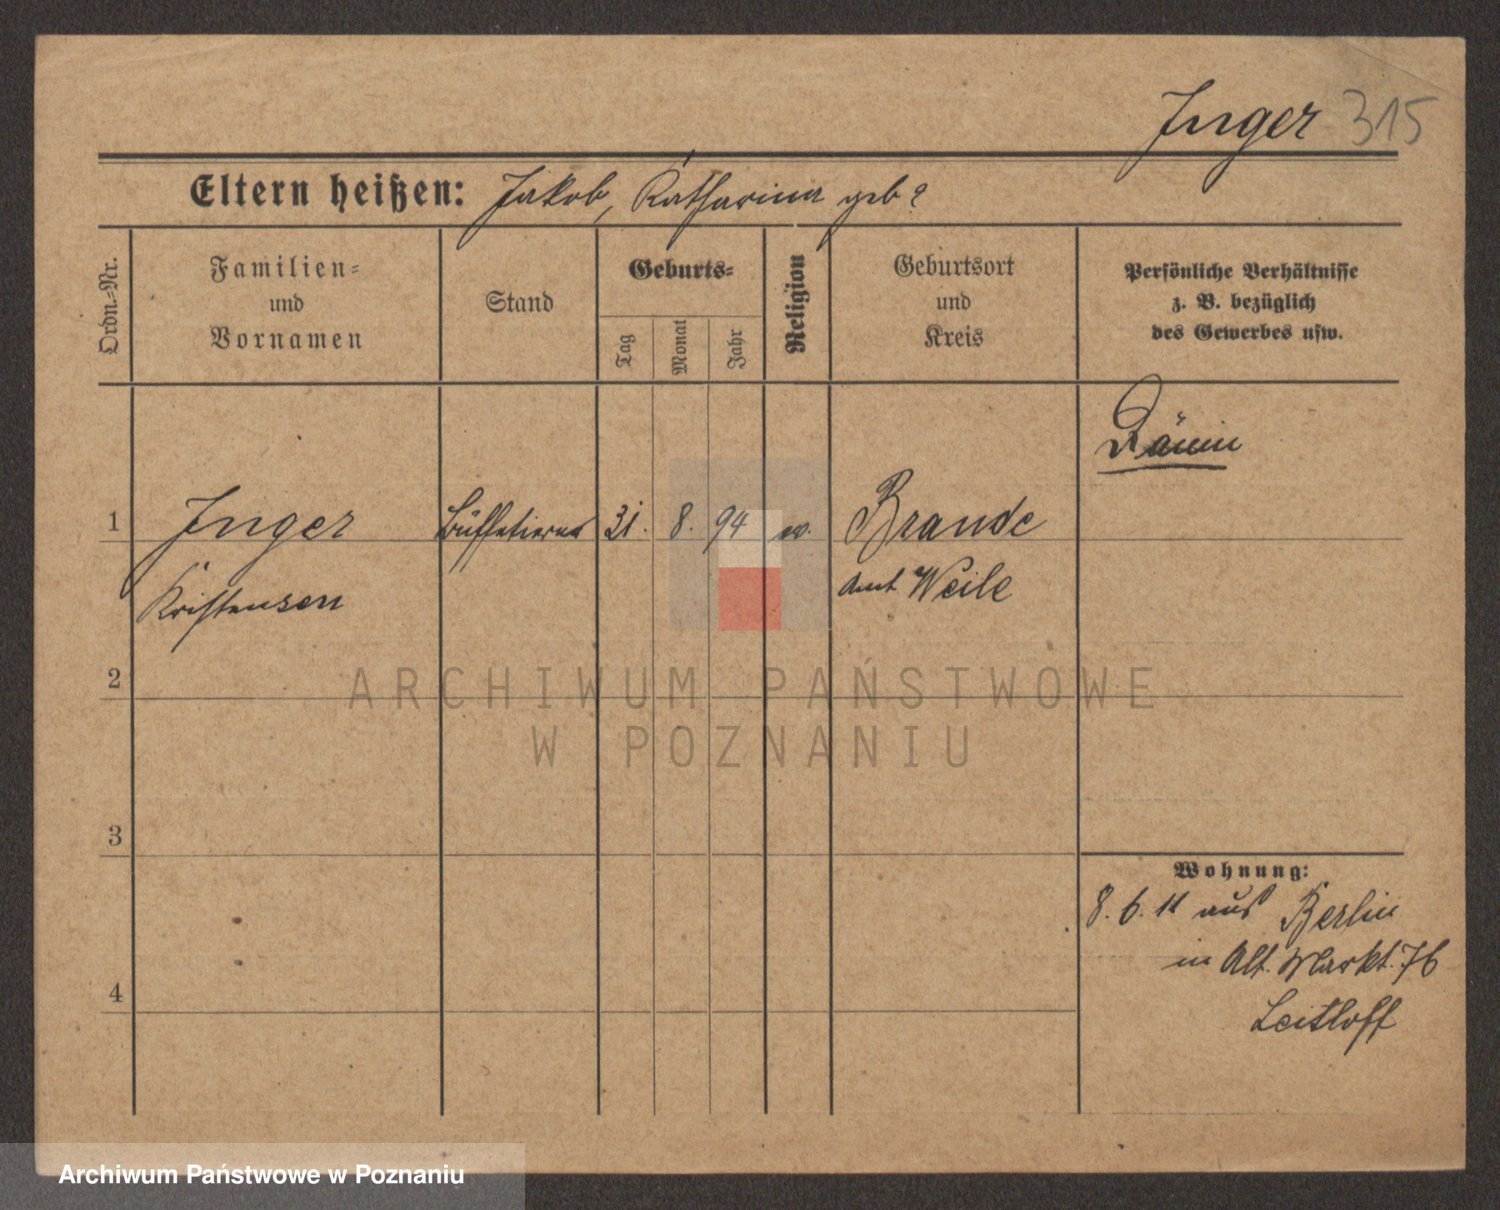 Inger 315
Eltern heißen: Jakob, Katharina geb ?
Ordn.-Nr.
Familien-
und
Vornamen
Stand
Geburts-
Tag
Monat
Jahr
Religion
Geburtsort
und
Kreis
Persönliche Verhältnisse
z. B. bezüglich
des Gewerbes usw.
Dänin
1 Inger Büffetieren 31. 8. 94 ev. Brande
Kristensen Amt Weile
2
ARCHIWUM PAŃSTWOWE
W POZNANIU
3
Wohnung:
8. 6. 11 aus Berlin
in Alt. Markt. 76
4
Leitloff
Archiwum Państwowe w Poznaniu